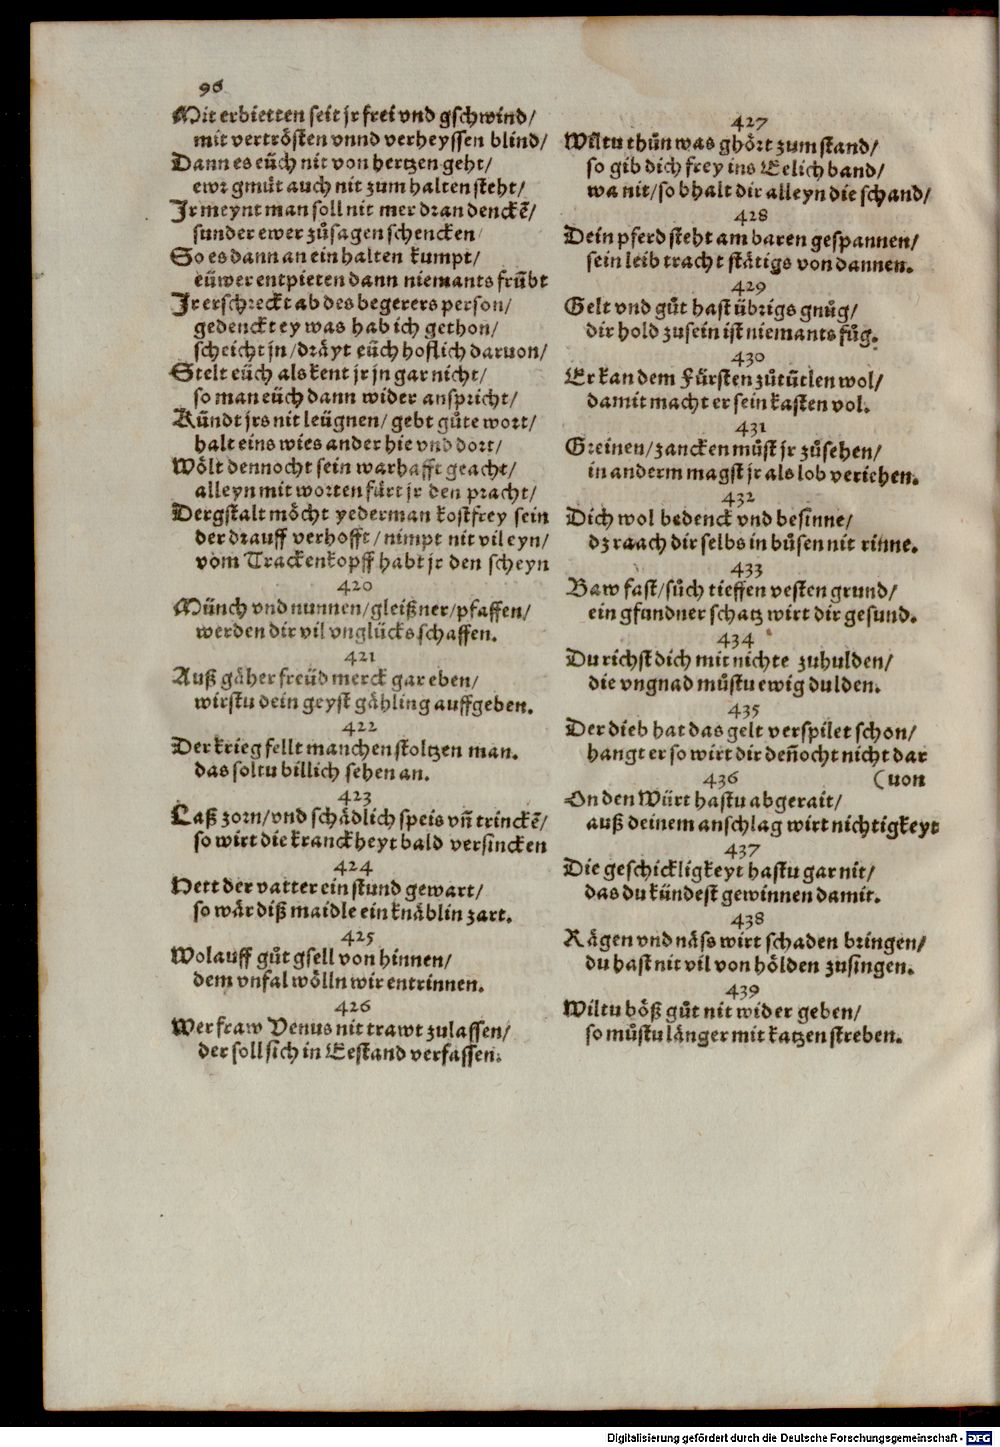 96
Mit erbietten seit jr frei vnd gschwind/
mit vertrösten vnnd verheyssen blind/
Dann es eüch nit von hertzen geht/
ewr gmüt auch nit zum halten steht/
Jr meynt man soll nit mer dran denckẽ/
sunder ewer zůsagen schencken/
So es dann an ein halten kumpt/
eüwer entpieten dann niemants frübt
Jr erschreckt ab des begerers person/
gedenckt ey was hab ich gethon/
scheicht jn/dräyt eüch hoflich daruon/
Stelt eüch als kent jr jn gar nicht/
so man eüch dann wider anspricht/
Kündt jrs nit leügnen/ gebt gůte wort/
halt eins wies ander hie vnd dort/
Wölt dennocht sein warhafft geacht/
alleyn mit worten fürt jr den pracht/
Dergstalt möcht yederman kostfrey sein
der drauff verhofft/nimpt nit vil eyn/
vom Trackenkopff habt jr den scheyn
420
Münch vnd nunnen/gleißner/pfaffen/
werden dir vil vnglücks schaffen.
421
Auß gäher freüd merck gar eben/
wirstu dein geyst gähling auffgeben.
422
Der krieg fellt manchen stoltzen man.
das soltu billich sehen an.
423
Laß zorn/vnd schädlich speis vñ trinckẽ/
so wirt die kranckheyt bald versincken
424
Hett der vatter ein stund gewart/
so wär diß maidle ein knäblin zart.
425
Wolauff gůt gsell von hinnen/
dem vnfal wölln wir entrinnen.
426
Wer fraw Venus nit trawt zulassen/
der soll sich in Eestand verfassen.
427
Wiltu thůn was ghört zum stand/
so gib dich frey ins Eelich band/
wa nit/so bhalt dir alleyn die schand/
428
Dein pferd steht am baren gespannen/
sein leib tracht stätigs von dannen.
429
Gelt vnd gůt hast übrigs gnůg/
dir hold zusein ist niemants fůg.
430
Er kan dem Fürsten zůtütlen wol/
damit macht er sein kasten vol.
431
Greinen/zancken můst jr zůsehen/
in anderm magst jr als lob veriehen.
432
Dich wol bedenck vnd besinne/
dz raach dir selbs in bůsen nit rinne.
433
Baw fast/sůch tieffen vesten grund/
ein gfundner schatz wirt dir gesund.
434
Du richst dich mit nichte zuhulden/
die vngnad můstu ewig dulden.
435
Der dieb hat das gelt verspilet schon/
hangt er so wirt dir deñocht nicht dar
(uon
436
On den Würt hastu abgerait/
auß deinem anschlag wirt nichtigkeyt
437
Die geschickligkeyt hastu gar nit/
das du kündest gewinnen damit.
438
Rägen vnd näss wirt schaden bringen/
du hast nit vil von hölden zusingen.
439
Wiltu böß gůt nit wider geben/
so můstu länger mit katzen streben.
Digitalisierung gefördert durch die Deutsche Forschungsgemeinschaft - DFG